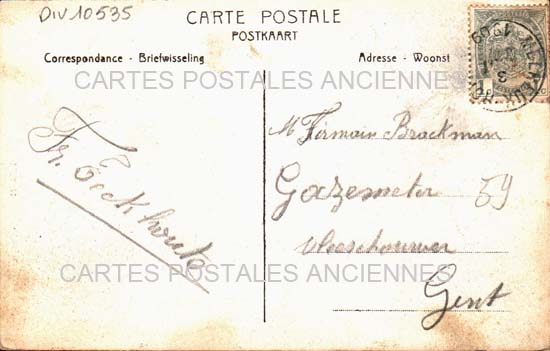 Div10535
CARTE POSTALE
POSTKAART
Correspondance - Briefwisseling
Adresse - Woonst
CARTES POSTALES ANCIENNES
Fr. Eeckhoutte
M Firmain Brackman
Gazemeter 59
Vleeschouwer
CARTES POSTALES ANCIENNES
Gent